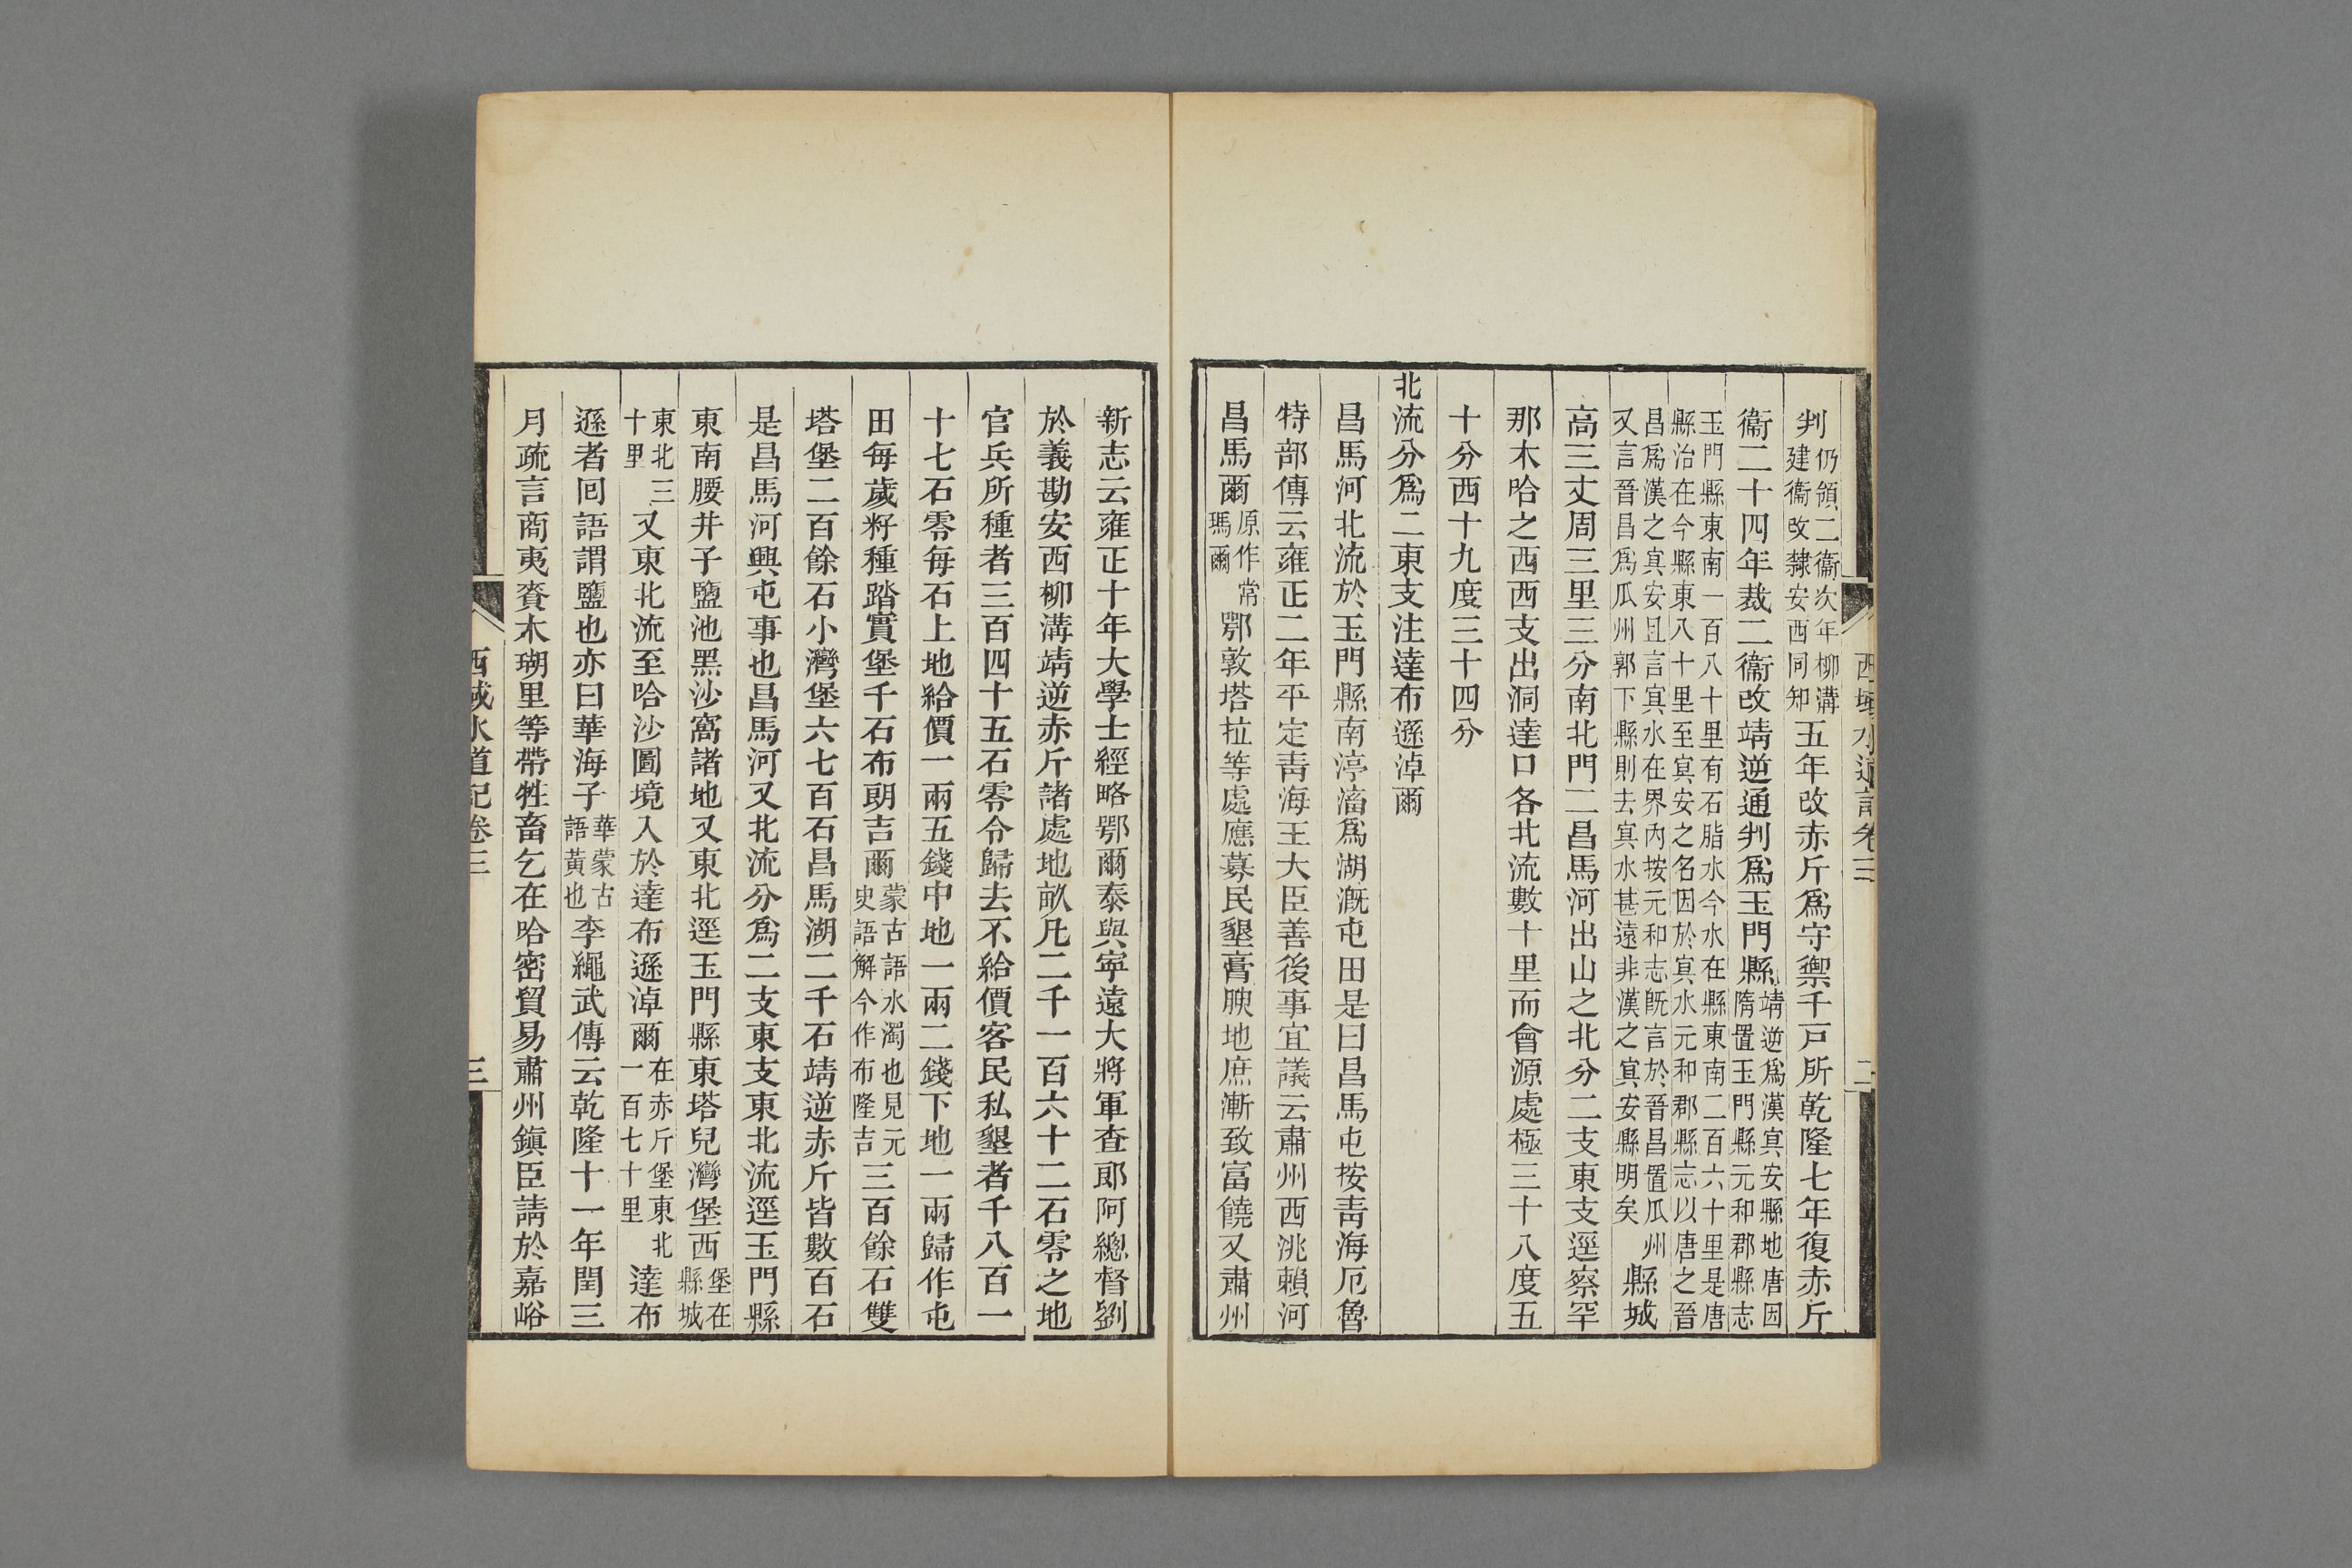 西域水道記卷三　二
判仍領二衞次年柳溝建衞改隸安西同知五年改赤斤爲守禦千戸所乾隆七年復赤斤
衞二十四年裁二衞改靖逆通判爲玉門縣靖逆爲漢㝠安縣地唐因隋置玉門縣元和郡縣志
玉門縣東南一百八十里有石脂水今水在縣東南二百六十里是唐縣治在今縣東八十里至㝠安之名因於㝠水元和郡縣志以唐之晉
昌爲漢之㝠安且言㝠水在界內按元和志旣言於晉昌置瓜州又言晉昌爲瓜州郭下縣則去㝠水甚遠非漢之㝠安縣明矣縣城
高三丈周三里三分南北門二昌馬河出山之北分二支東支逕察罕
那木哈之西西支出洞達口各北流數十里而會源處極三十八度五
十分西十九度三十四分
北流分爲二東支注達布遜淖爾
昌馬河北流於玉門縣南渟滀爲湖漑屯田是曰昌馬屯按靑海厄魯
特部傳云雍正二年平定靑海王大臣善後事宜議云肅州西洮賴河
昌馬爾原作常瑪爾鄂敦塔拉等處應募民墾膏腴地庶漸致富饒又肅州
新志云雍正十年大學士經略鄂爾泰與寧遠大將軍查郎阿總督劉
於義勘安西柳溝靖逆赤斤諸處地畝凡二千一百六十二石零之地
官兵所種者三百四十五石零令歸去不給價客民私墾者千八百一
十七石零每石上地給價一兩五錢中地一兩二錢下地一兩歸作屯
田每歲籽種踏實堡千石布朗吉爾蒙古語水濁也見元史語解今作布隆吉三百餘石雙
塔堡二百餘石小灣堡六七百石昌馬湖二千石靖逆赤斤皆數百石
是昌馬河興屯事也昌馬河又北流分爲二支東支東北流逕玉門縣
東南腰井子鹽池黑沙窩諸地又東北逕玉門縣東塔兒灣堡西堡在縣城
東北三十里又東北流至哈沙圖境入於達布遜淖爾在赤斤堡東北一百七十里達布
遜者囘語謂鹽也亦曰華海子華蒙古語黃也李繩武傳云乾隆十一年閏三
月疏言商夷賚木瑚里等帶牲畜乞在哈密貿易肅州鎭臣請於嘉峪
西域水道記卷三　三